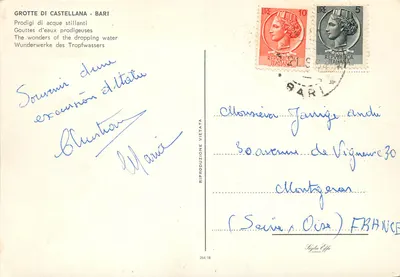 GROTTE DI CASTELLANA - BARI
Prodigi di acque stillanti
Gouttes d'eaux prodigeuses
The wonders of the dropping water
Wunderwerke des Tropfwassers
10
5
BARI
Souvenir d'une
excursion d'Italie
Christian
Maria
RIPRODUZIONE VIETATA
Monsieur Jarrige andré
30 avenue de Vigneux 30
Montgeron
(Seine, Oise) FRANCE